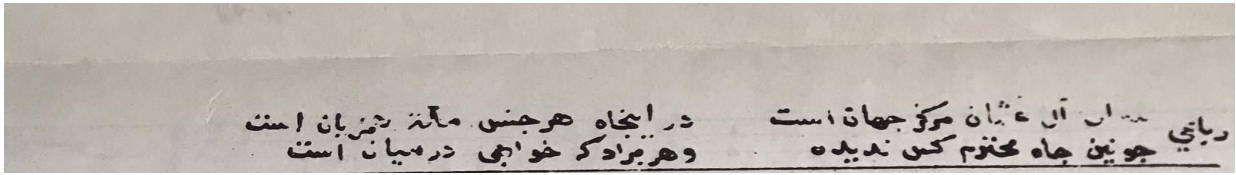 رباعي آل عثمان مركز جهان است در اينجاه هر جنس زبان است
جونين جاه محترم كس نديده وهر مرادكه خواهي درميان است